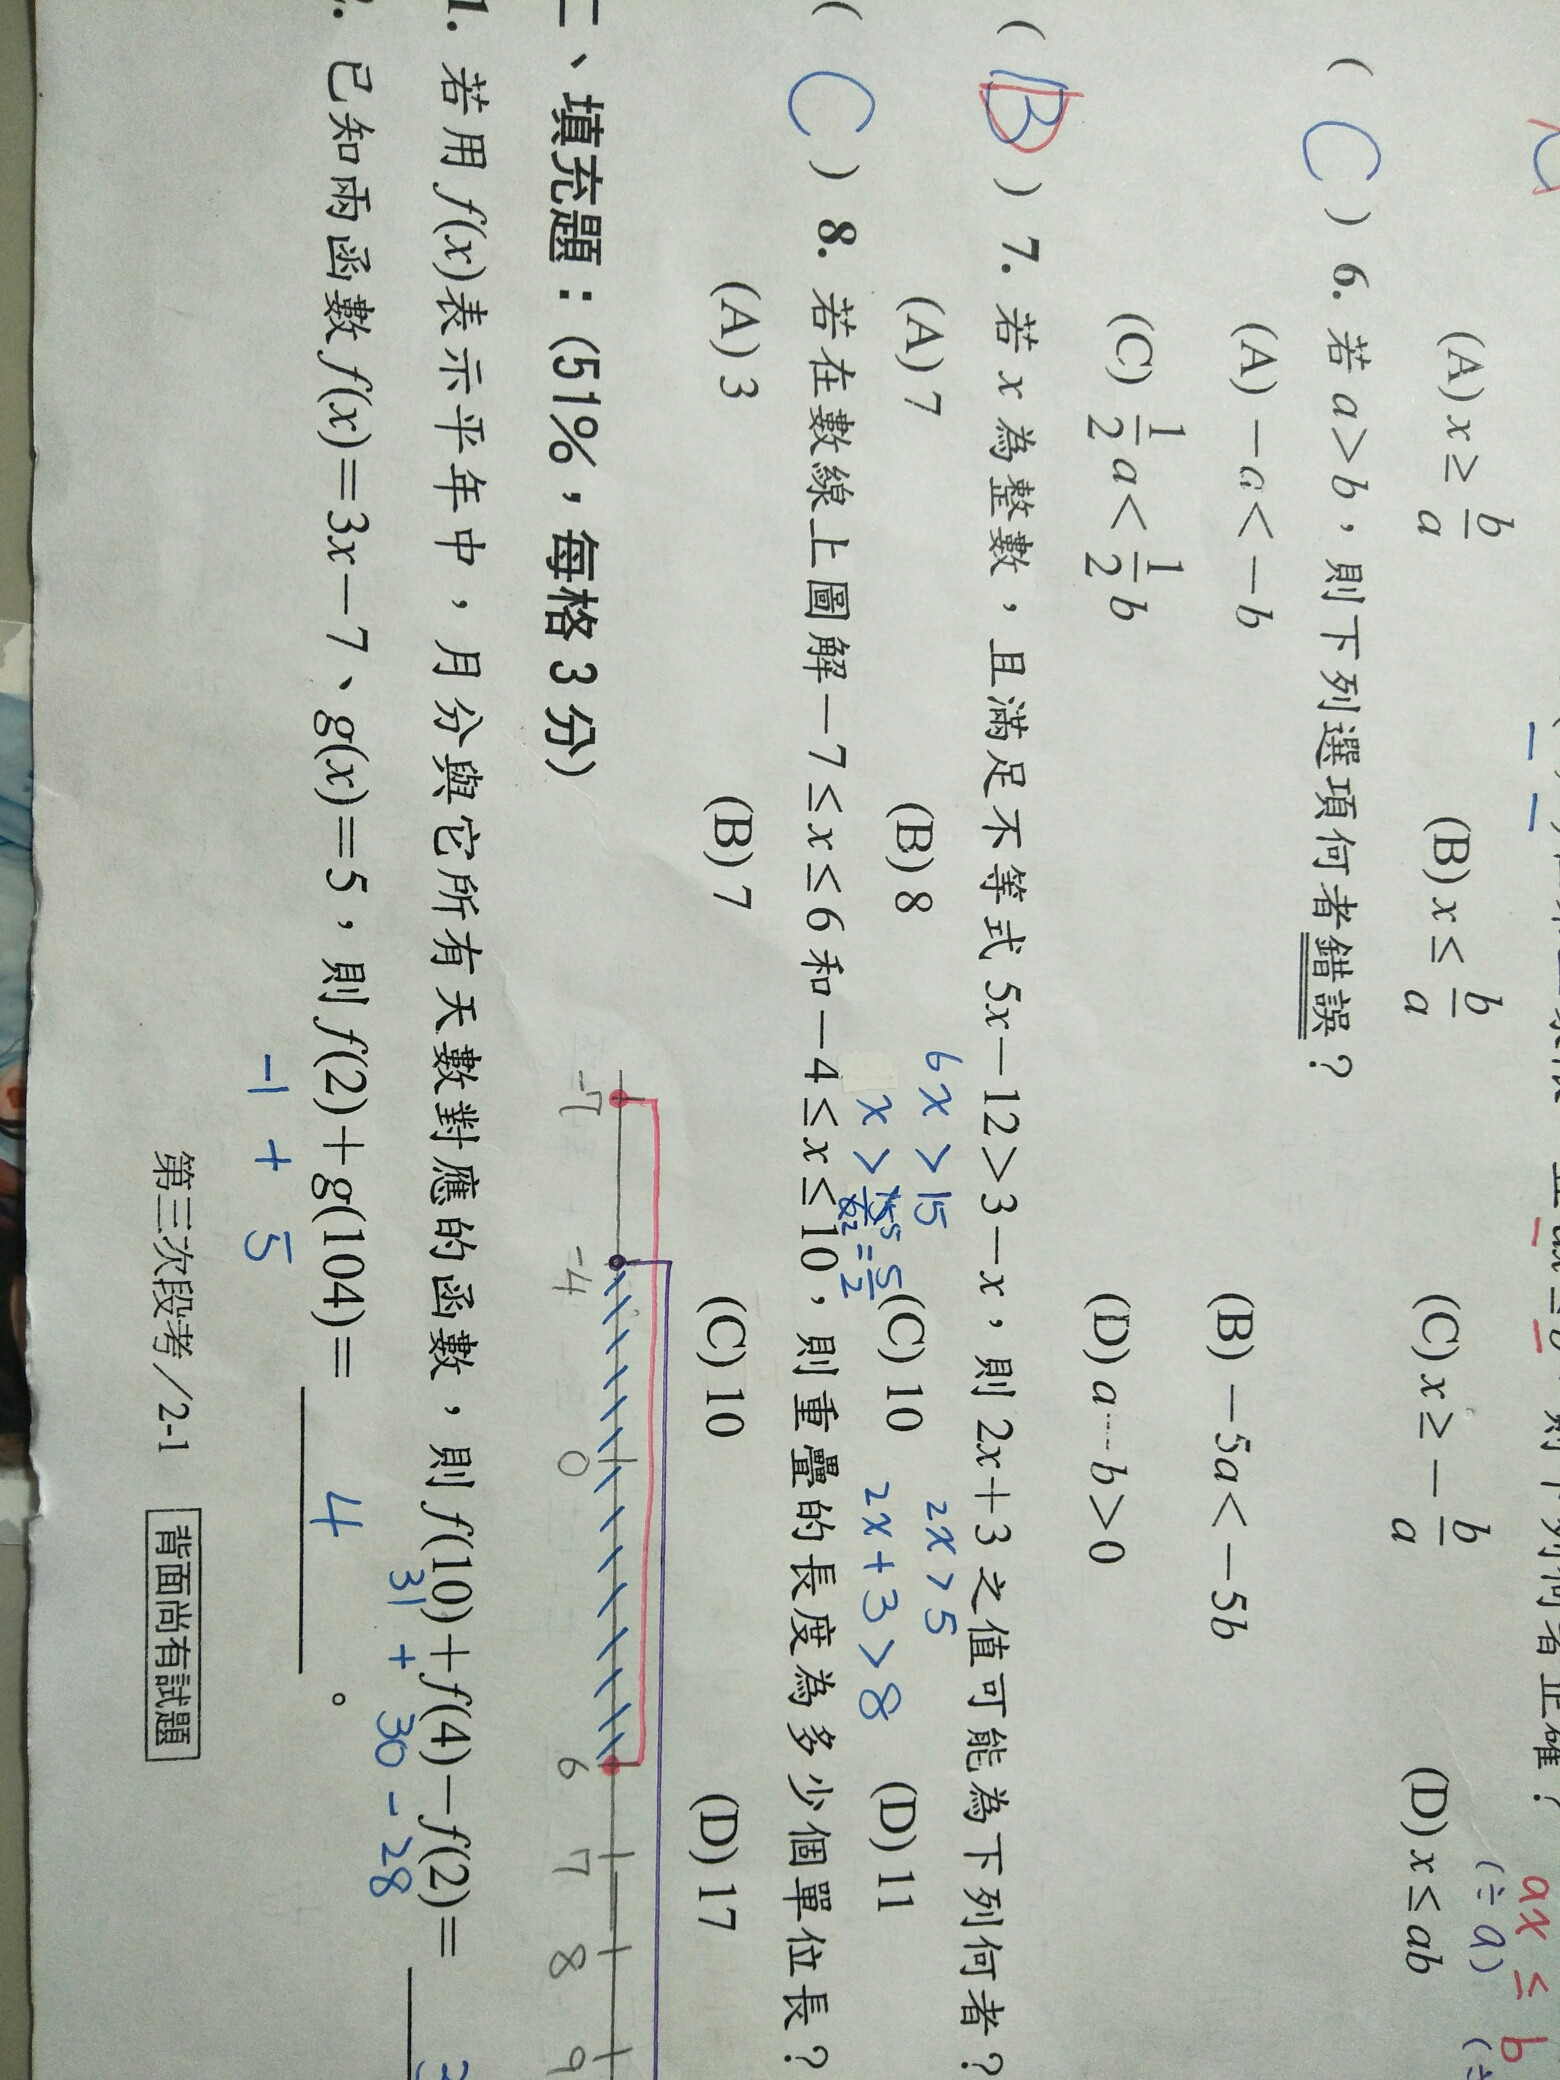 則下列何者正確?
ax ≤ b
(÷a)
(A) x≥b/a (B) x≤b/a (C) x≥-b/a (D) x≤ab
( C ) 6. 若 a>b,則下列選項何者錯誤?
(A) -a<-b (B) -5a<-5b
(C) 1/2a<1/2b (D) a-b>0
( B ) 7. 若 x 為整數,且滿足不等式 5x-12>3-x,則 2x+3 之值可能為下列何者?
6x > 15 2x > 5
(A) 7 (B) 8 (C) 10 (D) 11
x > 15/6 = 5/2 2x + 3 > 8
( C ) 8. 若在數線上圖解-7≤x≤6 和-4≤x≤10,則重疊的長度為多少個單位長?
(A) 3 (B) 7 (C) 10 (D) 17
-7 -4 0 6 7 8 9
二、填充題:(51%,每格 3 分)
1. 若用 f(x)表示平年中,月分與它所有天數對應的函數,則 f(10)+f(4)-f(2)=
31 + 30 - 28
2. 已知兩函數 f(x)=3x-7、g(x)=5,則 f(2)+g(104)= 4 。
-1 + 5
第三次段考/2-1 背面尚有試題